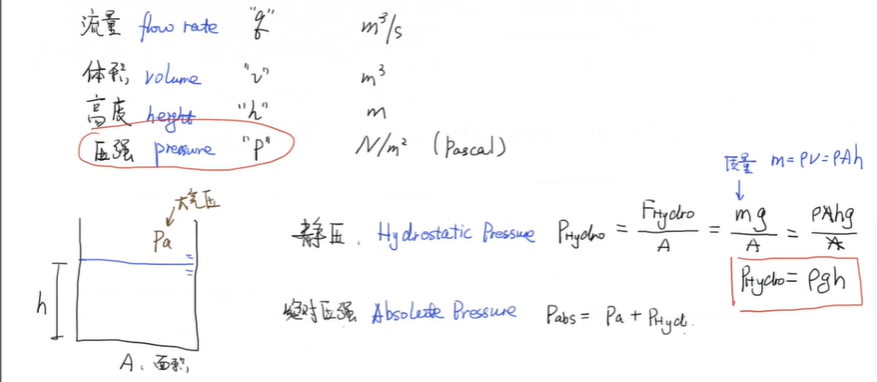 流量 flow rate "q" m³/s
体积 volume "v" m³
高度 height "h" m
压强 pressure "P" N/m² (Pascal)
质量 m=ρV=ρAh
大气压
Pa
静压. Hydrostatic Pressure PHydro = FHydro/A = mg/A = ρAhg/A
PHydro = ρgh
h
绝对压强 Absolute Pressure Pabs = Pa + PHyd.
A. 面积